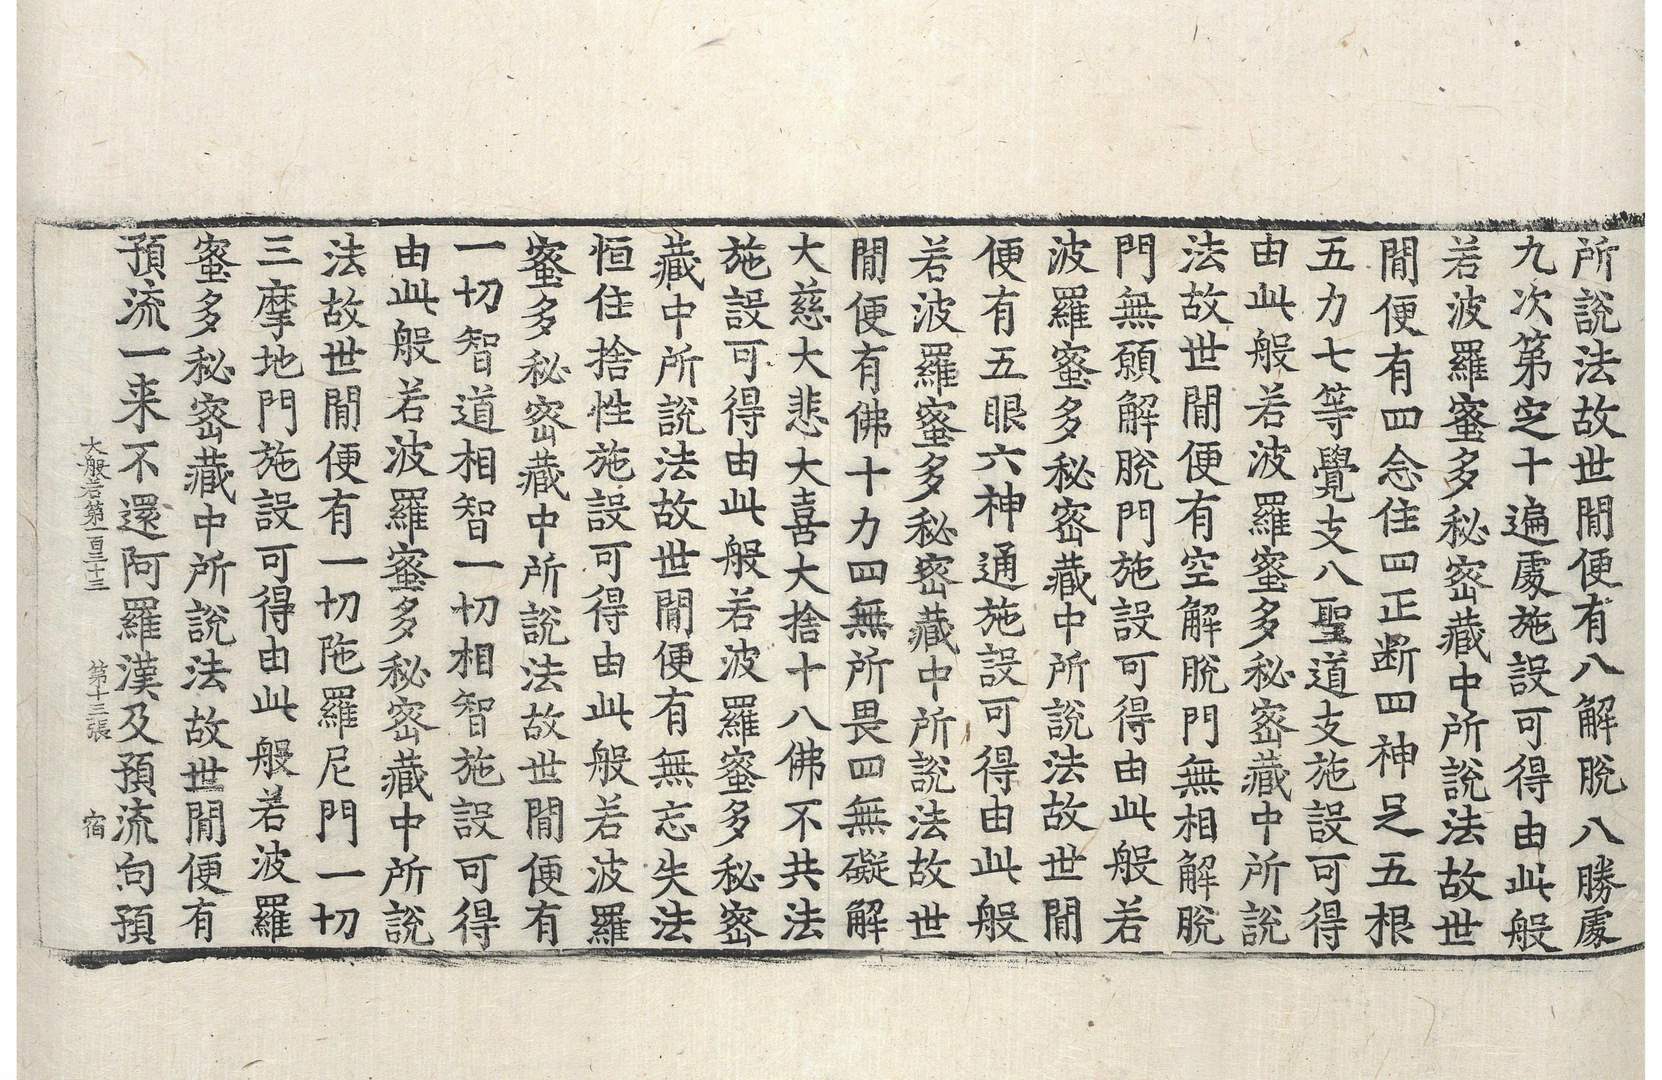 所說法故世閒便有八解脫八勝處
九次第定十遍處施設可得由此般
若波羅蜜多秘密藏中所說法故世
閒便有四念住四正斷四神足五根
五力七等覺支八聖道支施設可得
由此般若波羅蜜多秘密藏中所說
法故世閒便有空解脫門無相解脫
門無願解脫門施設可得由此般若
波羅蜜多秘密藏中所說法故世閒
便有五眼六神通施設可得由此般
若波羅蜜多秘密藏中所說法故世
閒便有佛十力四無所畏四無礙解
大慈大悲大喜大捨十八佛不共法
施設可得由此般若波羅蜜多秘密
藏中所說法故世閒便有無忘失法
恒住捨性施設可得由此般若波羅
蜜多秘密藏中所說法故世閒便有
一切智道相智一切相智施設可得
由此般若波羅蜜多秘密藏中所說
法故世閒便有一切陁羅尼門一切
三摩地門施設可得由此般若波羅
蜜多秘密藏中所說法故世閒便有
預流一来不還阿羅漢及預流向預
大般若第一百三十三 第十三張 宿